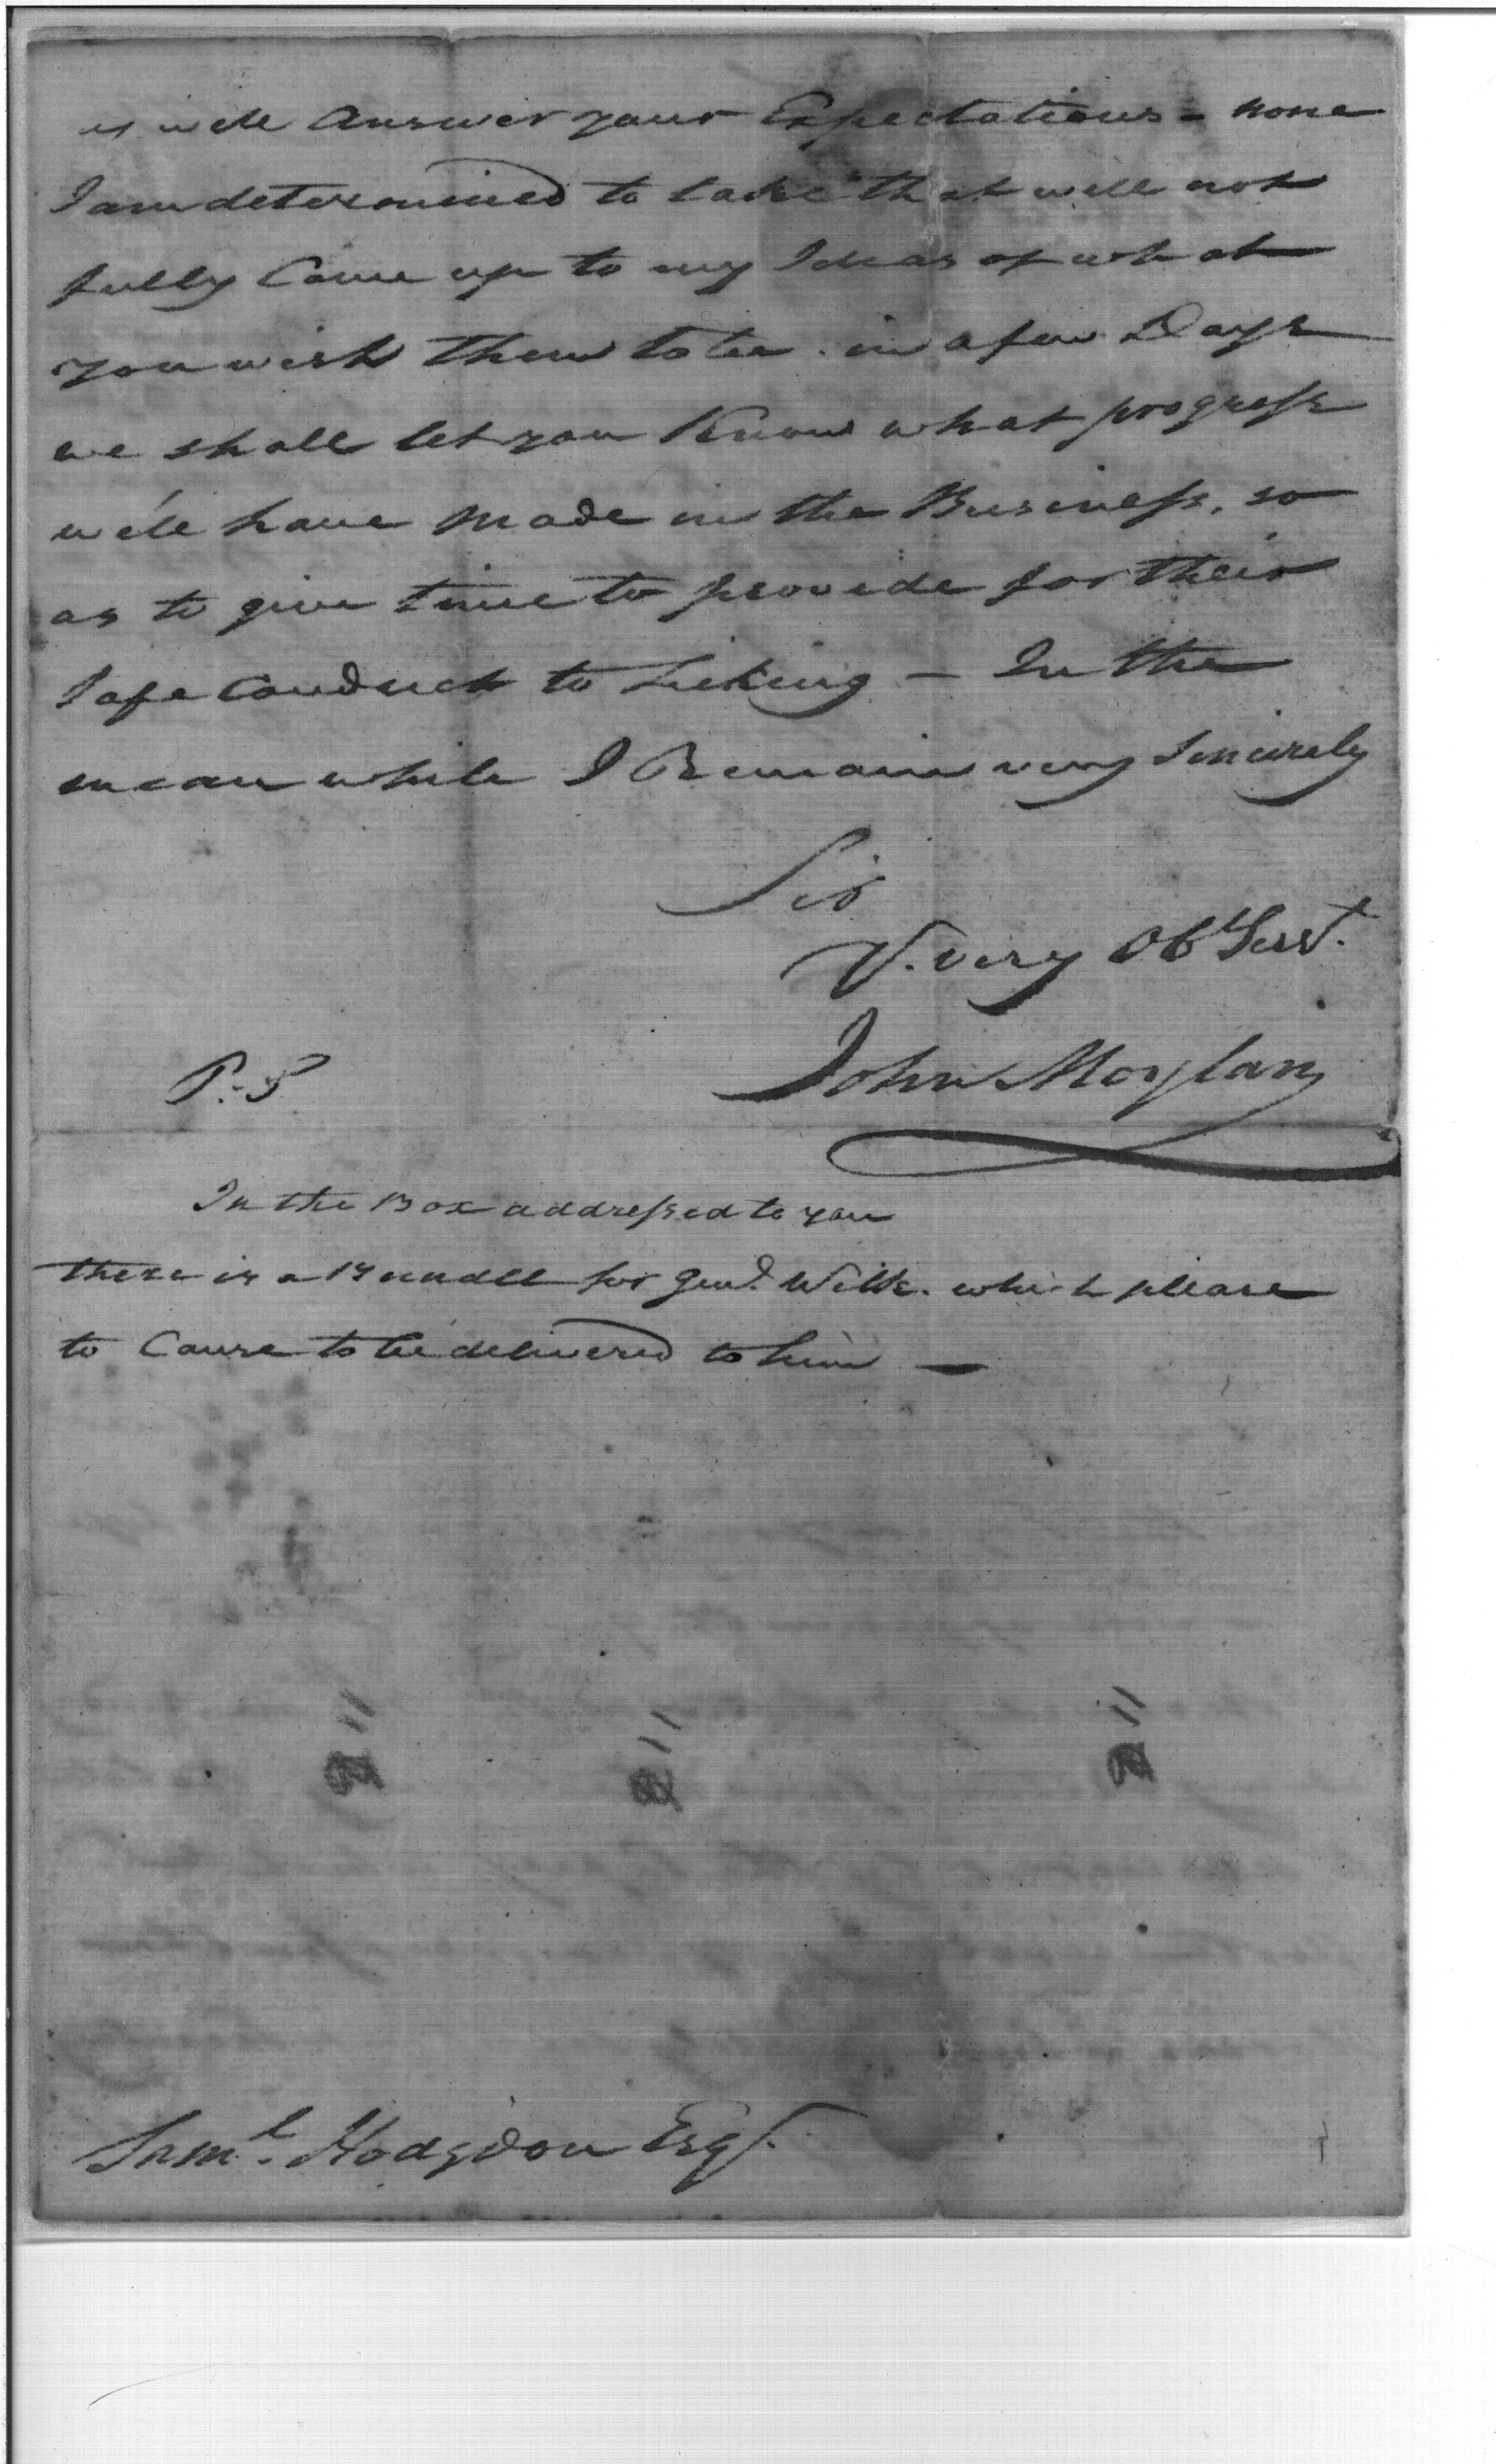 us will Answer your Expectations - none
I am determined to take that will not
fully Come up to my Ideas of what
you wish them to be. in a few Days
we shall let you Know what progress
we'll have made in the Business, so
as to give time to provide for their
Safe Conduct to Licking — In the
mean while I Remain very Sincerely
Sir
Y. very Ob Servt.
John Moylan
P.S
In the Box addressed to you
there is a Bundle for Genl. Wilk. which please
to Cause to be delivered to him —
211
211
211
Saml. Hodgdon Esqr.